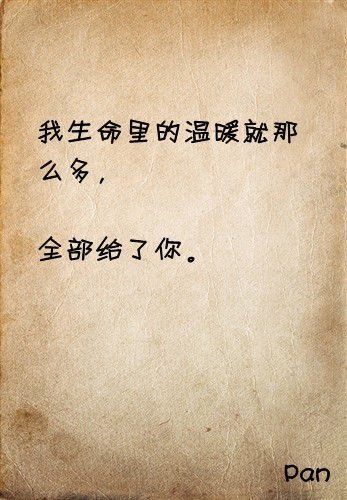 我生命里的温暖就那
么多，
全部给了你。
Pan